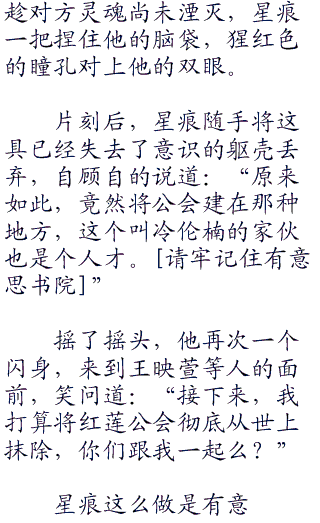 趁对方灵魂尚未湮灭，星痕
一把捏住他的脑袋，猩红色
的瞳孔对上他的双眼。
片刻后，星痕随手将这
具已经失去了意识的躯壳丢
弃，自顾自的说道：“原来
如此，竟然将公会建在那种
地方，这个叫冷伦楠的家伙
也是个人才。[请牢记住有意
思书院]”
摇了摇头，他再次一个
闪身，来到王映萱等人的面
前，笑问道：“接下来，我
打算将红莲公会彻底从世上
抹除，你们跟我一起么？”
星痕这么做是有意